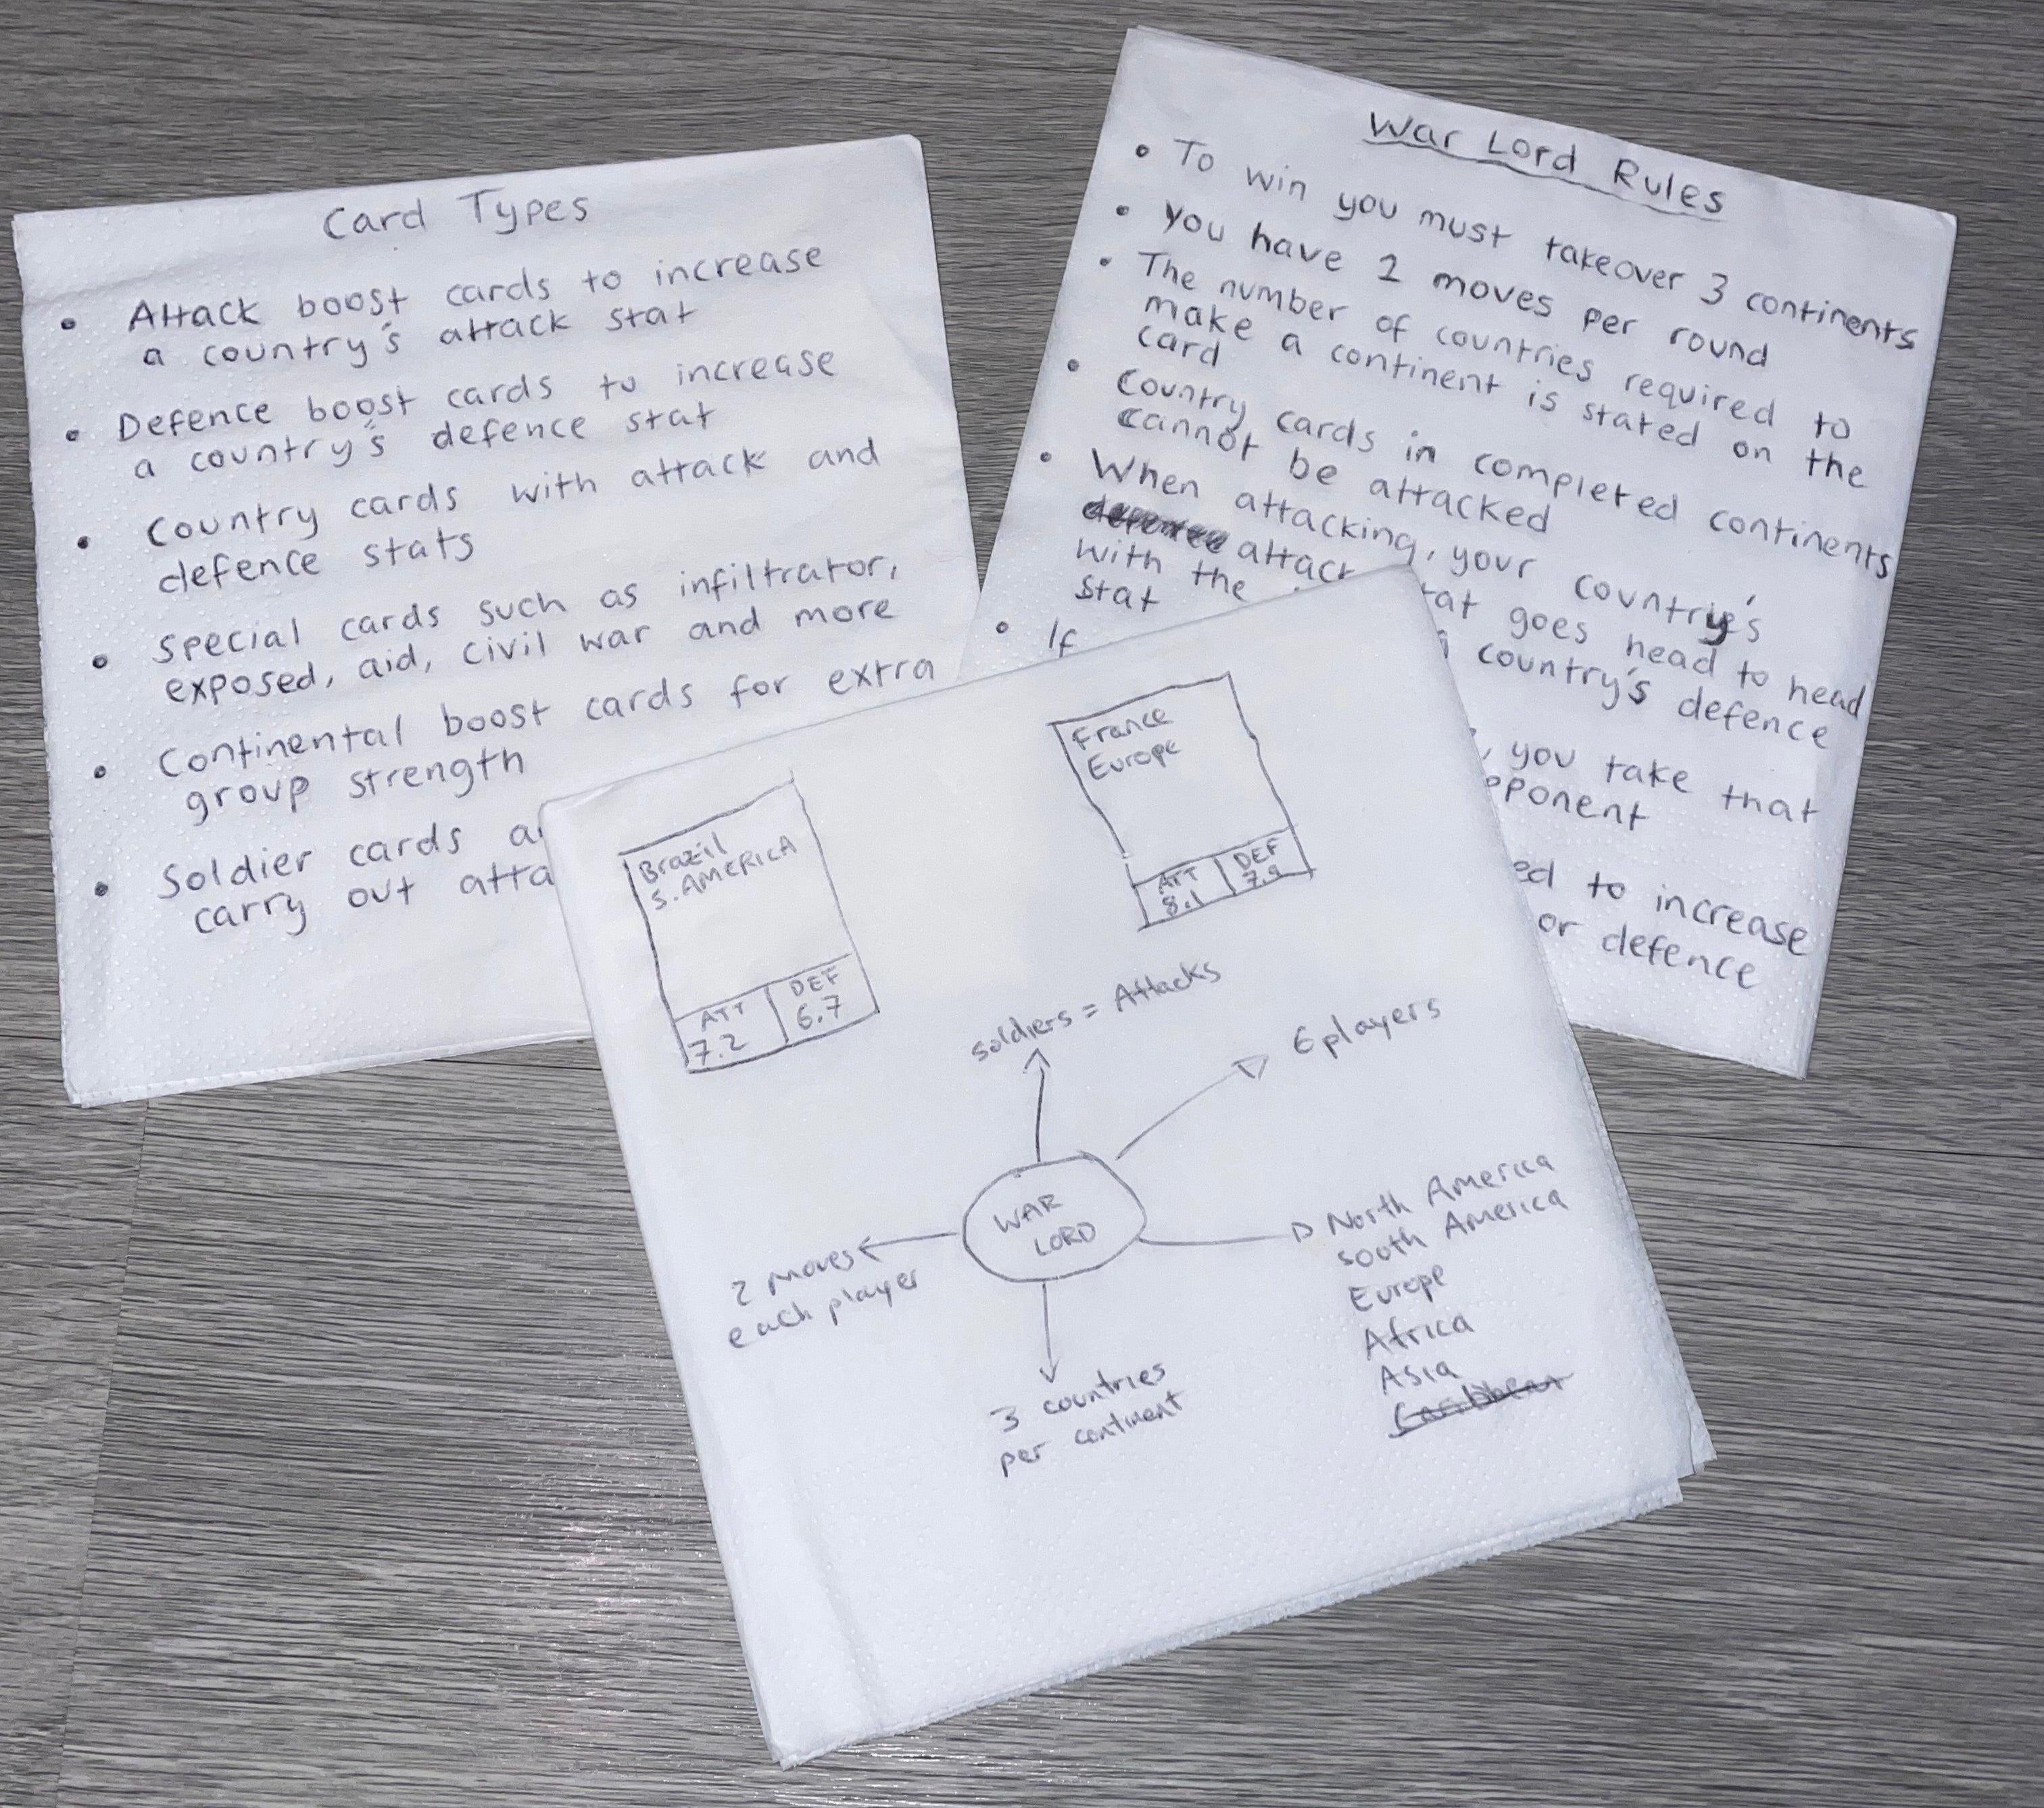 Card Types
• Attack boost cards to increase
a country's attack stat
• Defence boost cards to increase
a country's defence stat
• Country cards with attack and
defence stats
• Special cards such as infiltrator,
exposed, aid, civil war and more
• Continental boost cards for extra
group strength
• Soldier cards
carry out
War Lord Rules
• To win you must takeover 3 continents
• You have 2 moves per round
• The number of countries required to
make a continent is stated on the
card
• Country cards in completed continents
cannot be attacked
• When attacking, your country's
attack stat goes head to head
with the country's defence
stat
• If
, you take that
opponent
to increase
or defence
Brazil
S. AMERICA
ATT
7.2
DEF
6.7
France
Europe
ATT
8.1
DEF
7.9
soldiers = Attacks
6 players
WAR
LORD
North America
South America
Europe
Africa
Asia
Caribbean
2 moves
each player
3 countries
per continent